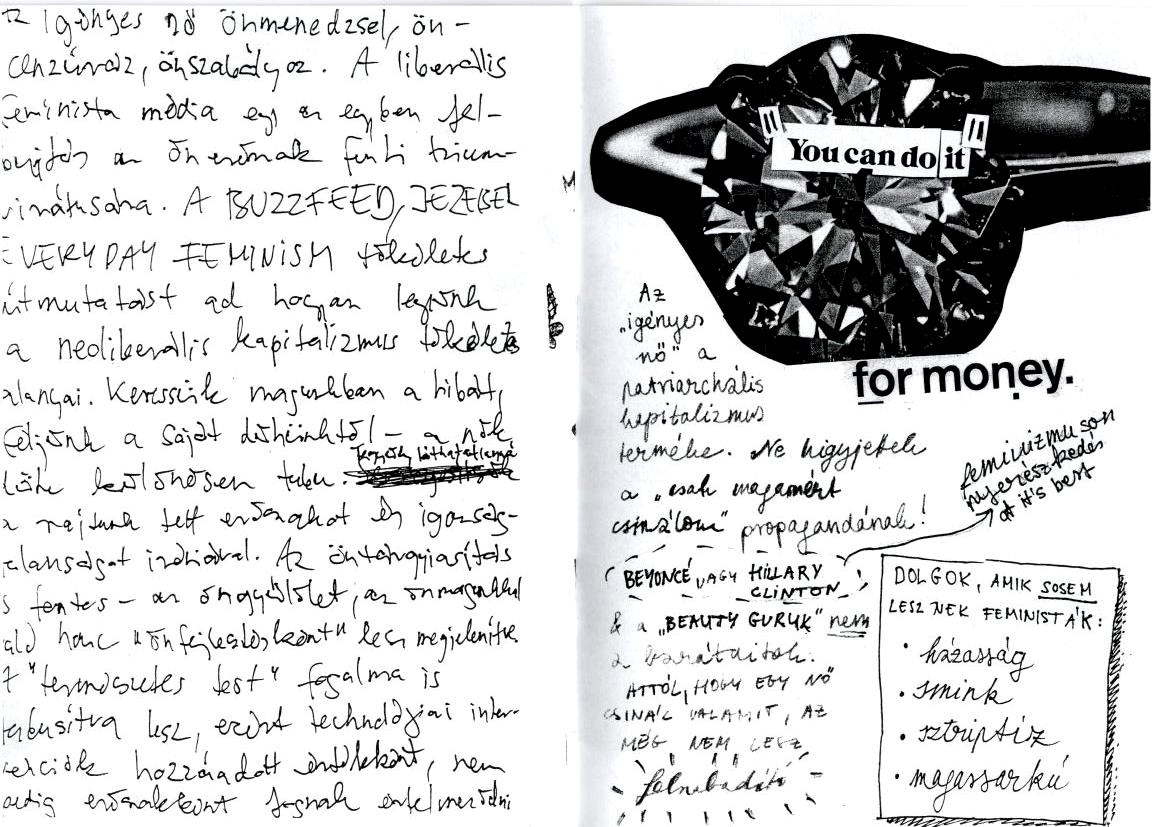 Az igényes nő önmenedzsel, ön-
cenzúráz, önszabályoz. A liberális
feminista média egy az egyben fel-
az önerőnek fenti trium-
virátusára. A BUZZFEED, JEZEBEL
EVERYDAY FEMINISM tökéletes
útmutatást ad hogyan legyünk
a neoliberális kapitalizmus tökéletes
alanyai. Keressük magunkban a hibát,
féljünk a saját dühünktől – a nők
dühe különösen tabu. tegyük láthatatlanná
a rajtunk tett erőszakot és igazság-
talanságot Az öntárgyiasítás
s fentes – az öngyűlölet, az önmagunkkal
való harc "önfejlesztésként" lesz megjelenítve
"természetes test" fogalma is
tabusítva lesz, ezért technológiai inter-
venciók hozzáadott értékként, nem
pedig erőszakként fognak értelmeződni
"You can do it"
for money.
Az
„igényes
nő" a
patriarchális
kapitalizmus
terméke. Ne higyjetek
a „csak magamért
csinálom" propagandának!
feminizmuson
nyerészkedés
at it's best
BEYONCÉ VAGY HILLARY
CLINTON
& a „BEAUTY GURUK" nem
a barátaitok.
ATTÓL, HOGY EGY NŐ
CSINÁL VALAMIT, AZ
MÉG NEM LESZ
felszabadító
DOLGOK, AMIK SOSEM
LESZNEK FEMINISTÁK:
• házasság
• smink
• sztriptíz
• magassarkú